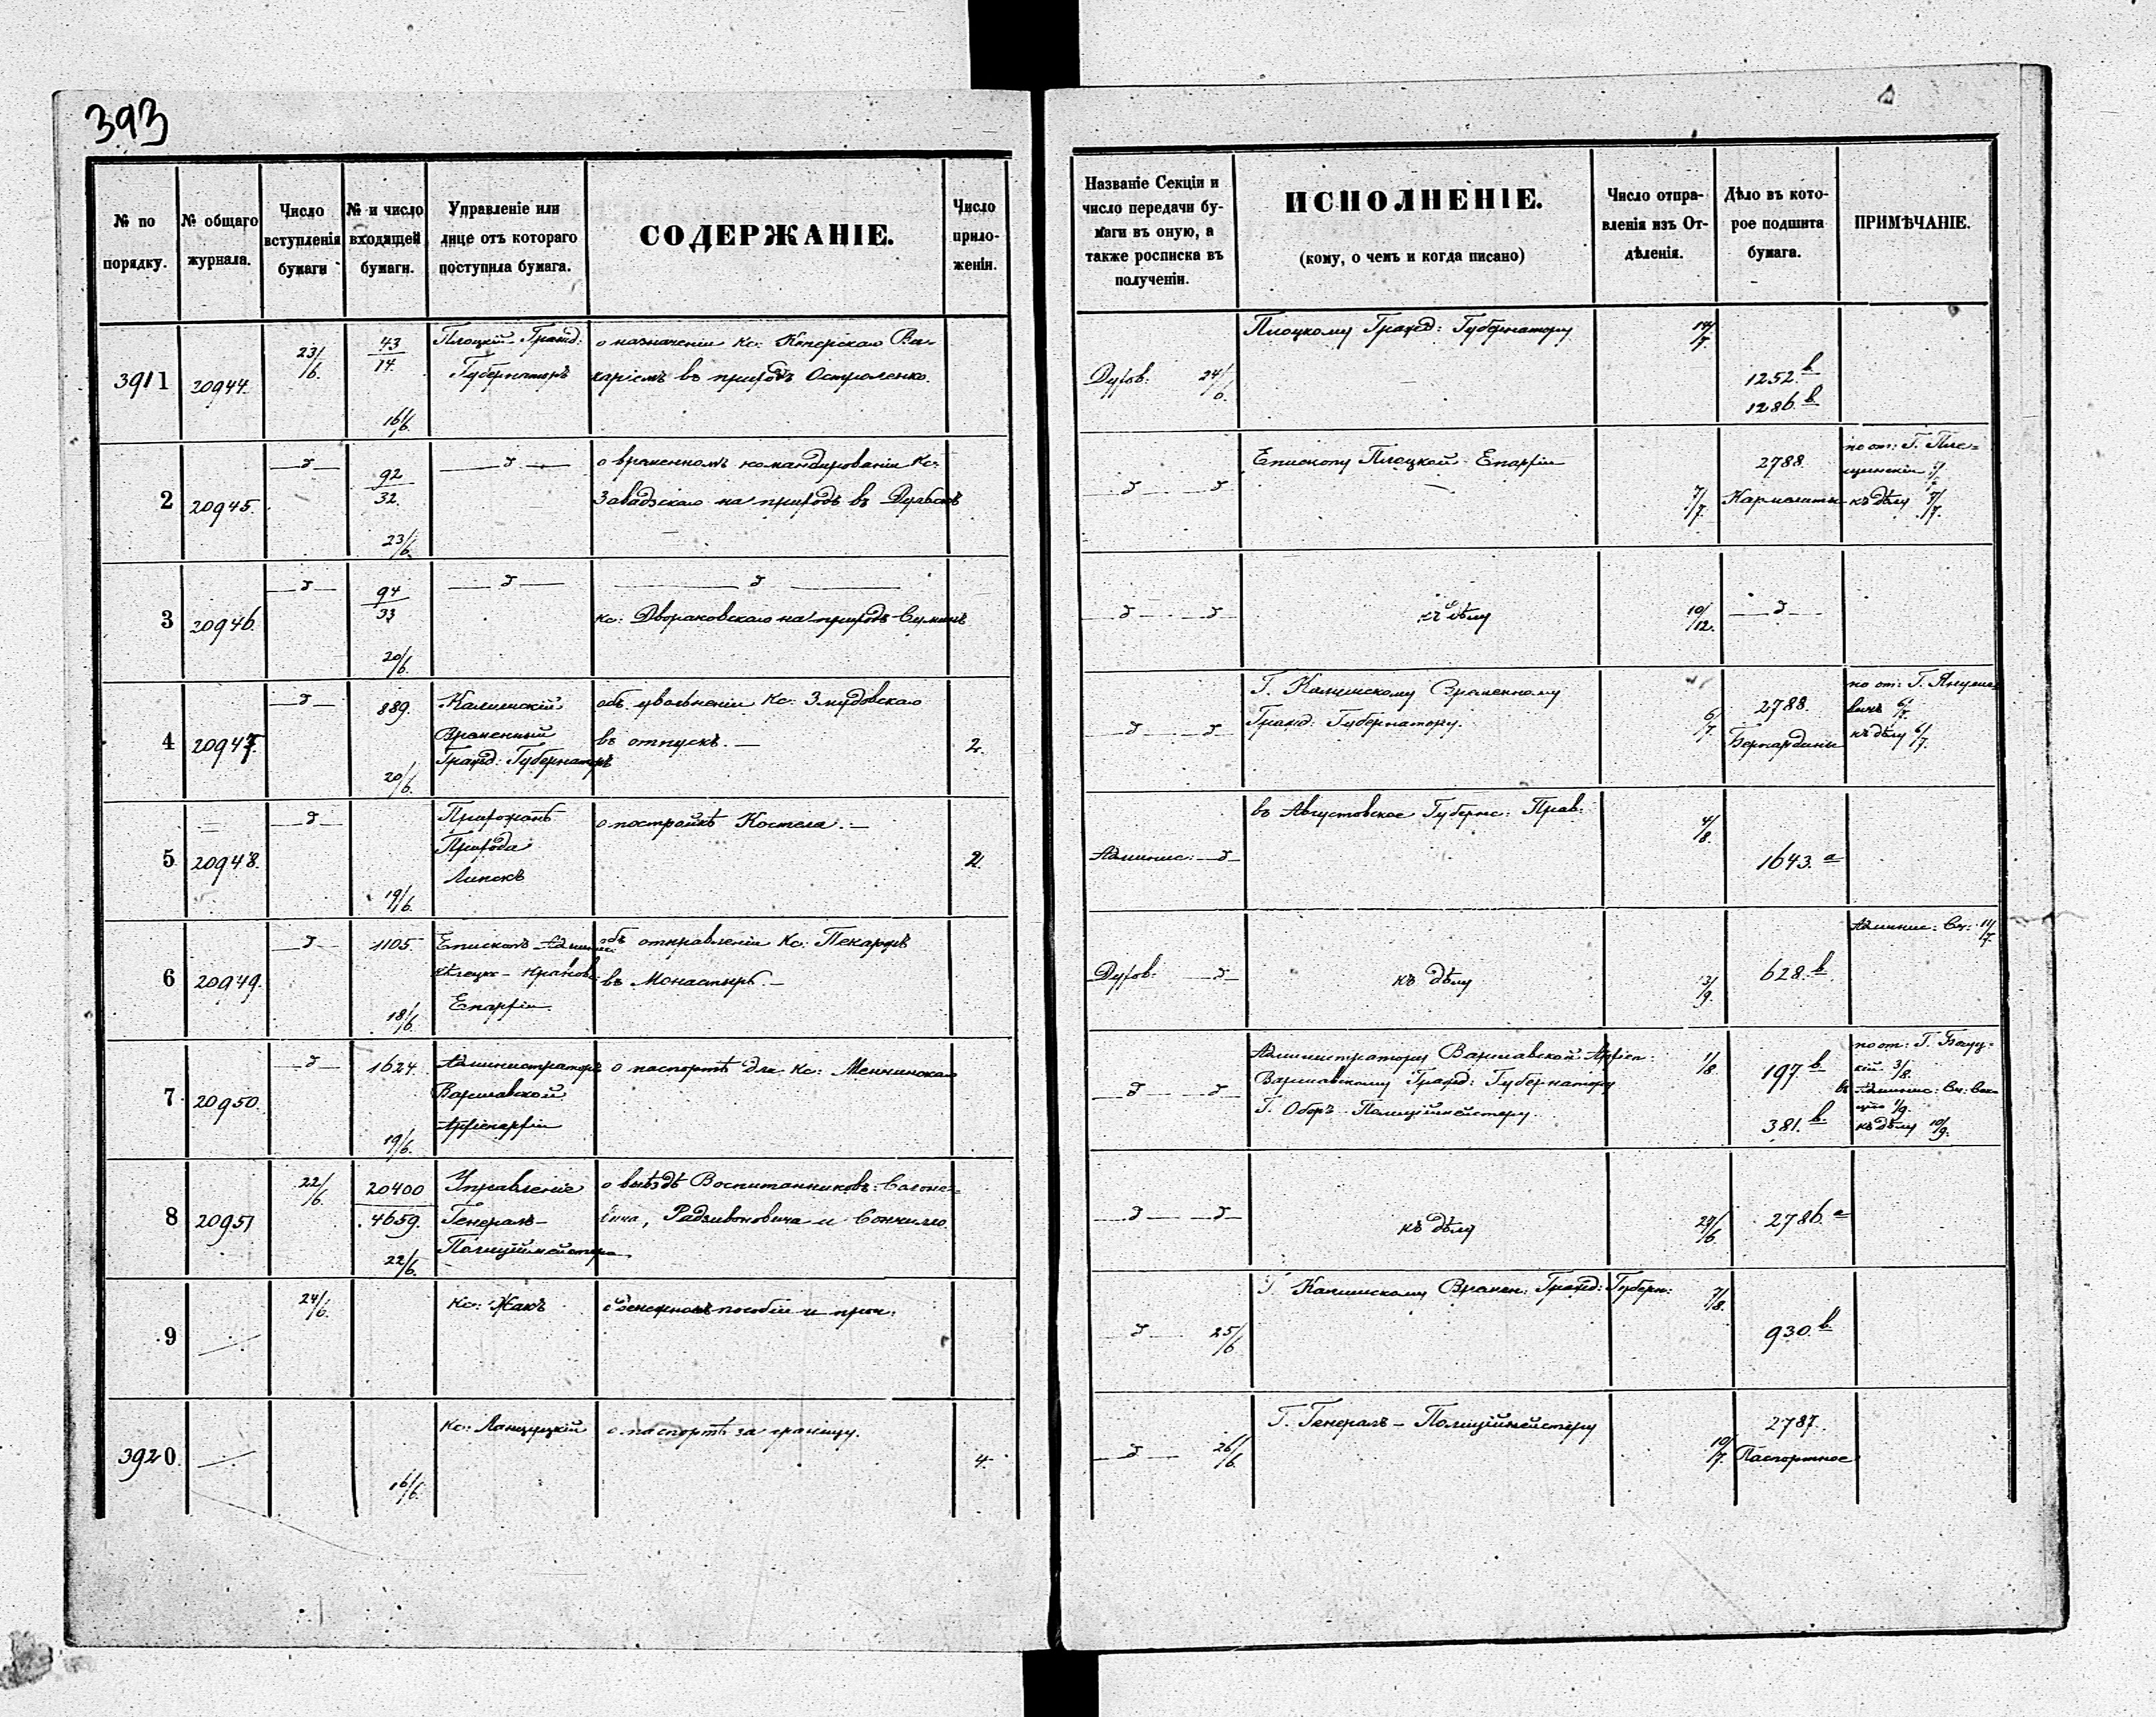 393
№ по порядку.
№ общаго журнала.
Число вступленія бумаги
№ и число входящей бумаги.
Управленіе или лице отъ котораго поступила бумага.
СОДЕРЖАНІЕ.
Число приложеніи.
Названіе Секціи и число передачи бумаги въ оную, а также росписка въ полученіи.
ИСПОЛНЕНІЕ.
(кому, о чемъ и когда писано)
Число отправленія изъ Отдѣленія.
Дѣло въ которое подшита бумага.
ПРИМѢЧАНІЕ.
3911
20944.
23/6.
43/14.
16/6.
Плоцкій Гражд:
Губернаторъ
о назначеніи Кс: Ви-
каріемъ въ приходъ Остроленко.
Духов: 24/6.
Плоцкому Гражд: Губернатору
14/7.
1252.в
1286.в
2
20945.
д
92/32.
23/6.
д
о временномъ командированіи Кс:
Завадзскаго на приходъ въ
д д
Епископу Плоцкой Епархіи
7/7.
2788.
Кармелиты
по от: Г.
къ дѣлу 7/7.
3
20946.
д
94/33
20/6.
д
д
кс: Двораковскаго на приходъ
д д
къ дѣлу
10/12.
д
4
20947.
д
889.
20/6.
Калишскій
Временный
Гражд: Губернаторъ
объ увольненіи Кс: Змудовскаго
въ отпускъ.
2.
д д
Г. Калишскому Временному
Гражд: Губернатору.
6/7.
2788.
Бернардины
по от: Г.
къ дѣлу 6/7.
5
20948.
д
19/6.
Прихожанъ
Прихода
Липскъ
о постройкѣ Костела.
2.
Админис: д
въ Августовское Губернс: Прав:
4/8.
1643.а
6
20949.
д
1105.
18/6.
Епископъ
Кѣлецко-Краков:
Епархіи.
объ отправленіи Кс:
въ Монастырь.
Духов: д
къ дѣлу
3/9.
628.в
Админис: Сч: 11/7.
7
20950.
д
1624.
19/6.
Администраторъ
Варшавской
Архіепархіи
о паспортѣ для Кс:
д д
Администратору Варшавской Архіеп:
Варшавскому Гражд: Губернатору
Г. Оберъ-Полиціймейстеру.
1/8.
197.в
381.в.
по от: Г.
3/8.
въ Админис: Сч:
1/9.
къ дѣлу 10/9.
8
20951
22/6.
20400/4659.
22/6.
Управленіе
Генералъ-
Полиціймейстера
о выѣздѣ Воспитанниковъ:
Радзивоновича и
д д
къ дѣлу
27/6.
2786.а
9
24/6.
Кс: Жакъ
о денежномъ пособіи и проч:
д 25/6.
Г. Калишскому Времен: Гражд: Губерн:
7/8.
930.в
3920
16/6.
Кс:
о паспортѣ за границу.
4.
д 26/6.
Г. Генералъ-Полиціймейстеру
10/7.
2787.
Паспортное